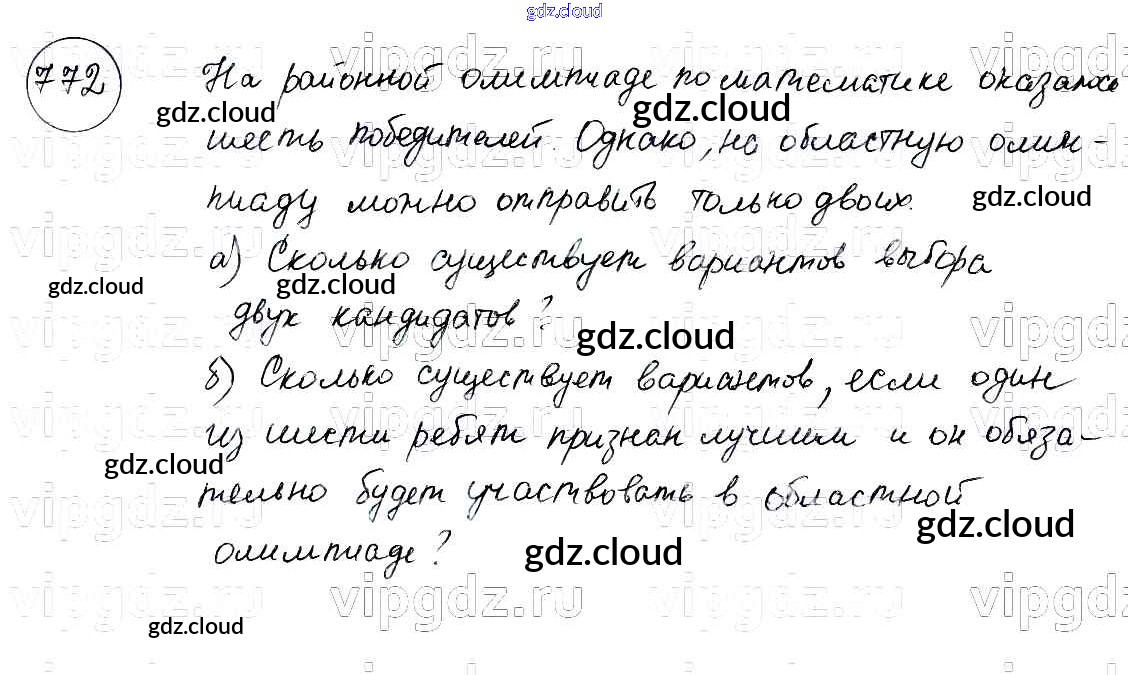 gdz.cloud
772 На районной олимпиаде по математике оказалось
шесть победителей. Однако, на областную олим-
пиаду можно отправить только двоих.
а) Сколько существует вариантов выбора
двух кандидатов?
б) Сколько существует вариантов, если один
из шести ребят признан лучшим и он обяза-
тельно будет участвовать в областной
олимпиаде?
gdz.cloud
gdz.cloud
gdz.cloud
gdz.cloud
gdz.cloud
gdz.cloud
gdz.cloud
gdz.cloud
gdz.cloud
gdz.cloud
vipgdz.ru